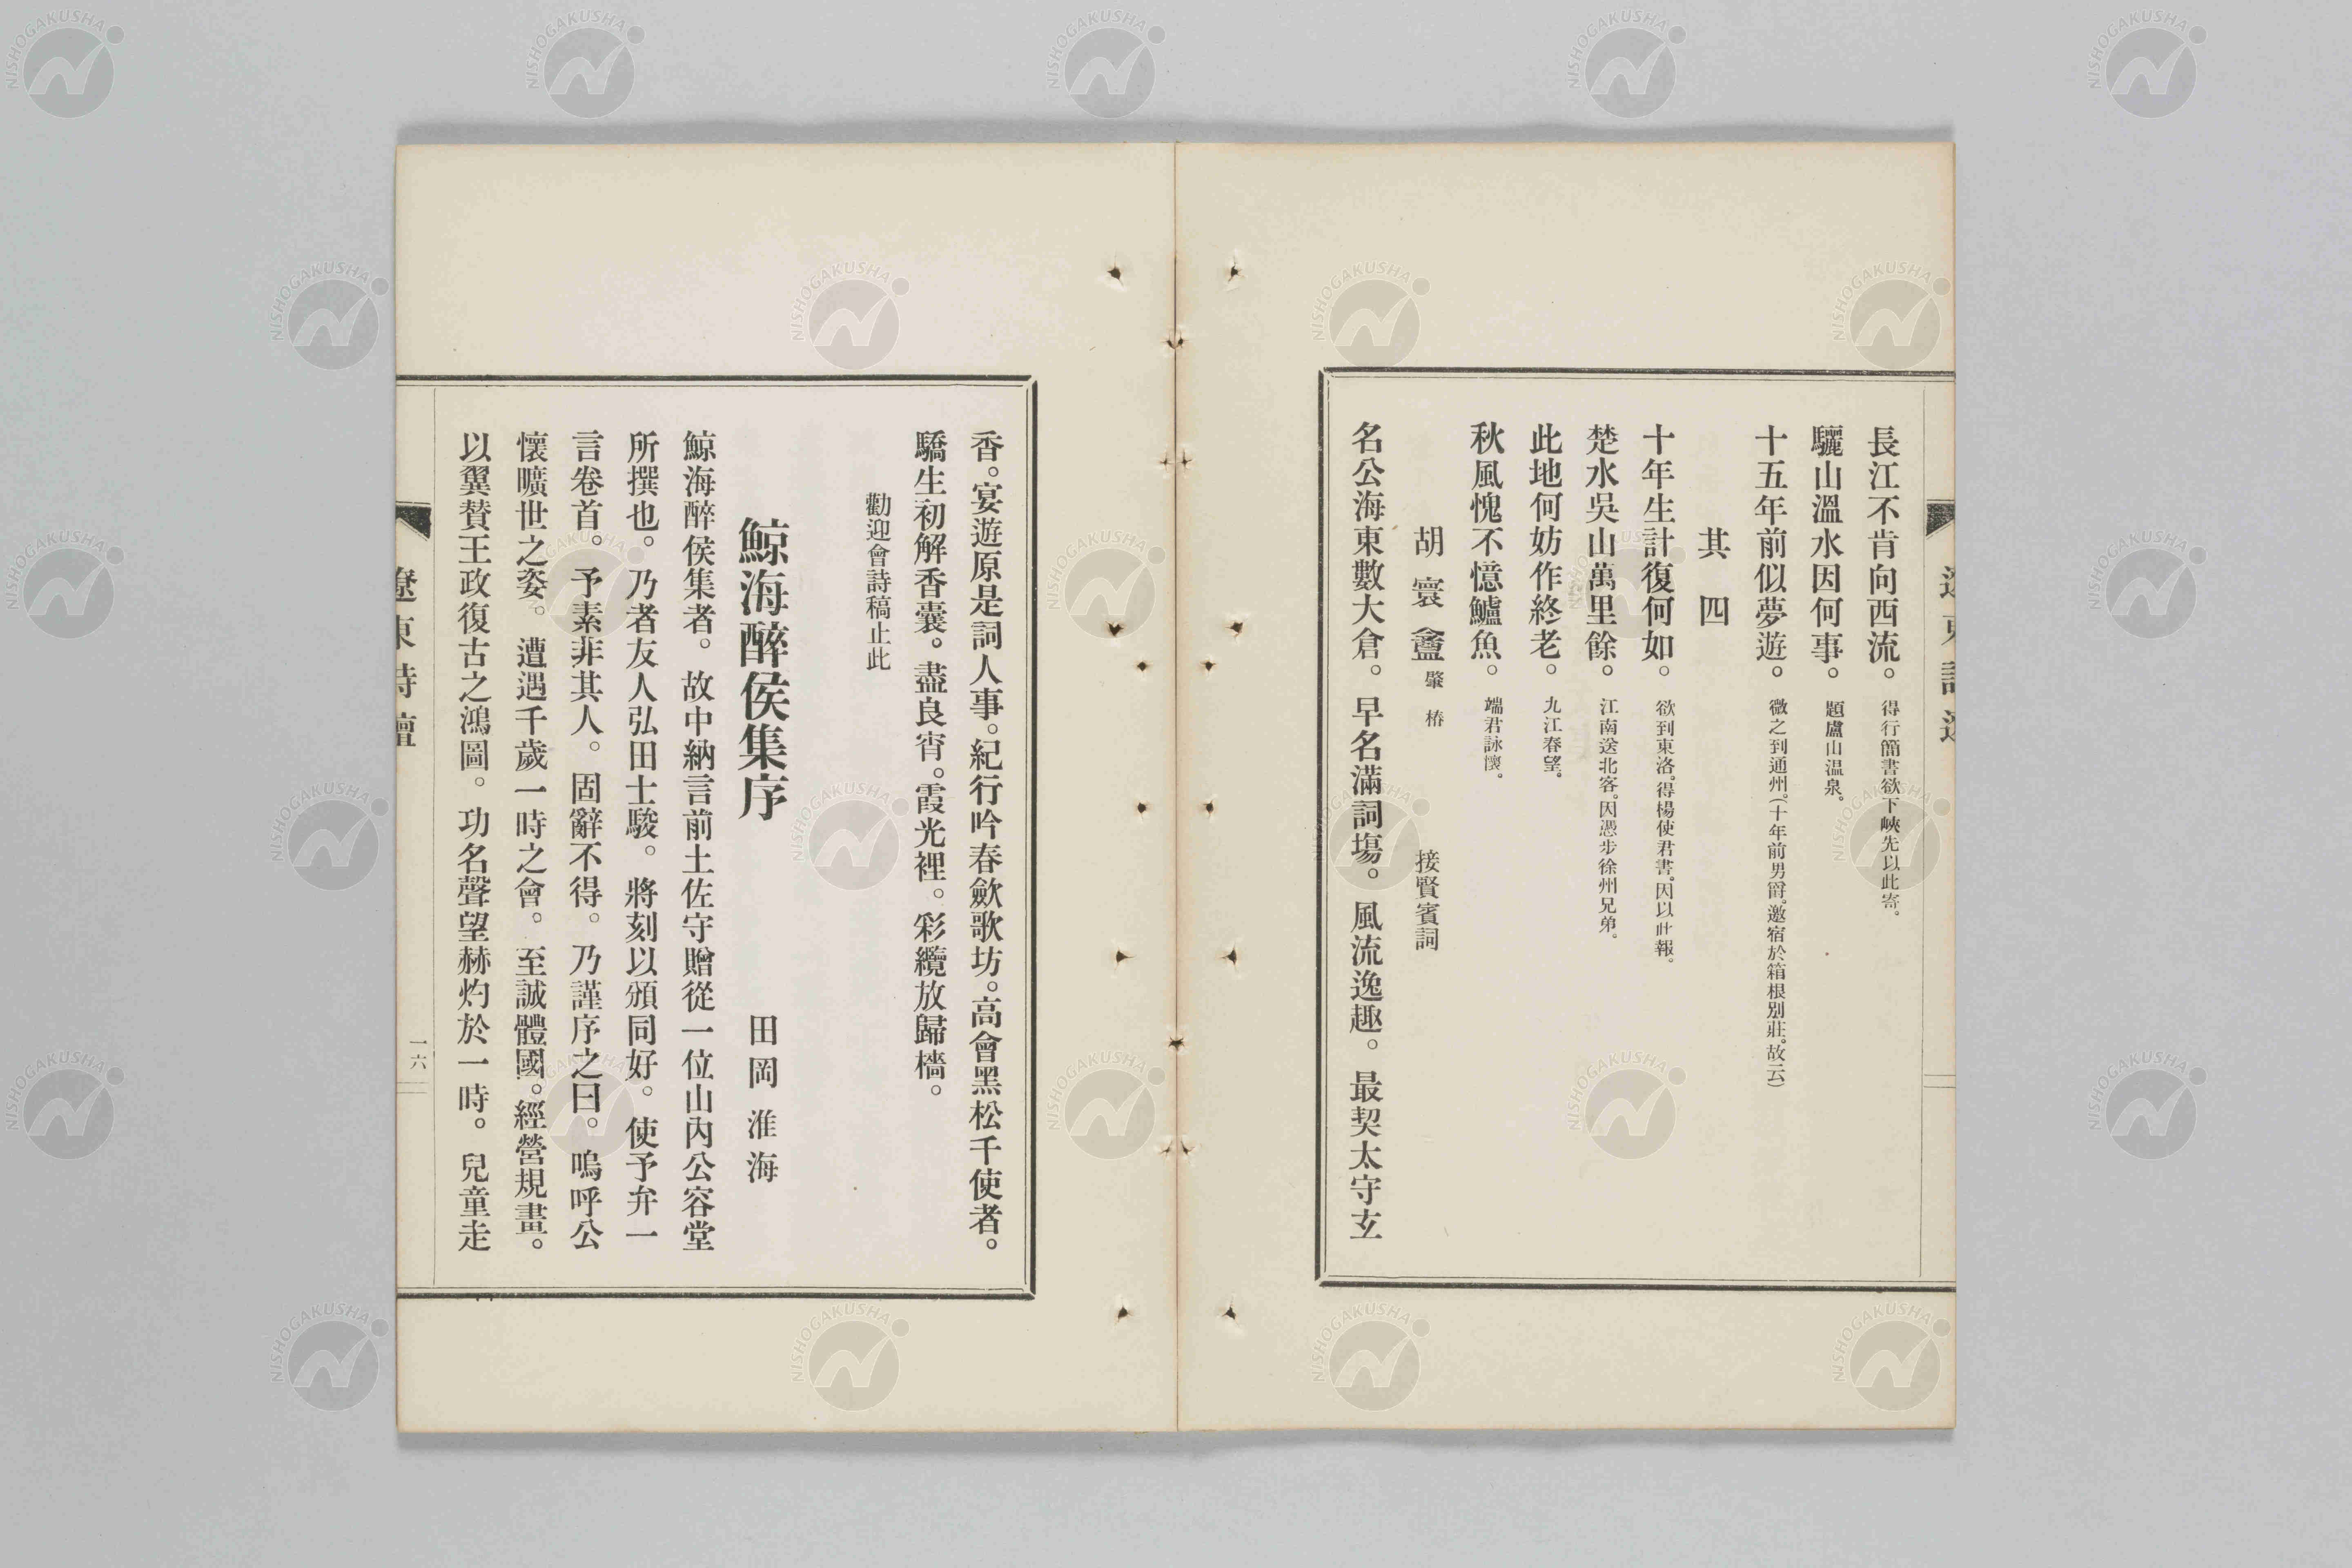 長江不肯向西流。得行簡書欲下峽先以此寄。
驪山溫水因何事。題盧山温泉。
十五年前似夢遊。微之到通州。(十年前男爵。邀宿於箱根別莊。故云)
其四
十年生計復何如。欲到東洛。得楊使君書。因以此報。
楚水吳山萬里餘。江南送北客。因憑步徐州兄弟。
此地何妨作終老。九江春望。
秋風愧不憶鱸魚。端君詠懷。
胡寰盦 肇椿 接賢賓詞
名公海東數大倉。早名滿詞塲。風流逸趣。最契太守玄
香。宴遊原是詞人事。紀行吟春歛歌坊。高會黑松千使者。
驕生初解香囊。盡良宵。霞光裡。彩纜放歸檣。
勸迎會詩稿止此
鯨海醉侯集序 田岡淮海
鯨海醉侯集者。故中納言前土佐守贈從一位山內公容堂
所撰也。乃者友人弘田士駿。將刻以頒同好。使予弁一
言卷首。予素非其人。固辭不得。乃謹序之曰。嗚呼公
懷曠世之姿。遭遇千歲一時之會。至誠體國。經營規畫。
以翼贊王政復古之鴻圖。功名聲望赫灼於一時。兒童走
遼東詩壇
一六
NISHOGAKUSHA